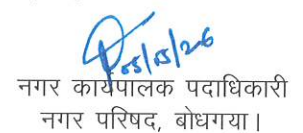 05/05/26
नगर कार्यपालक पदाधिकारी
नगर परिषद, बोधगया।